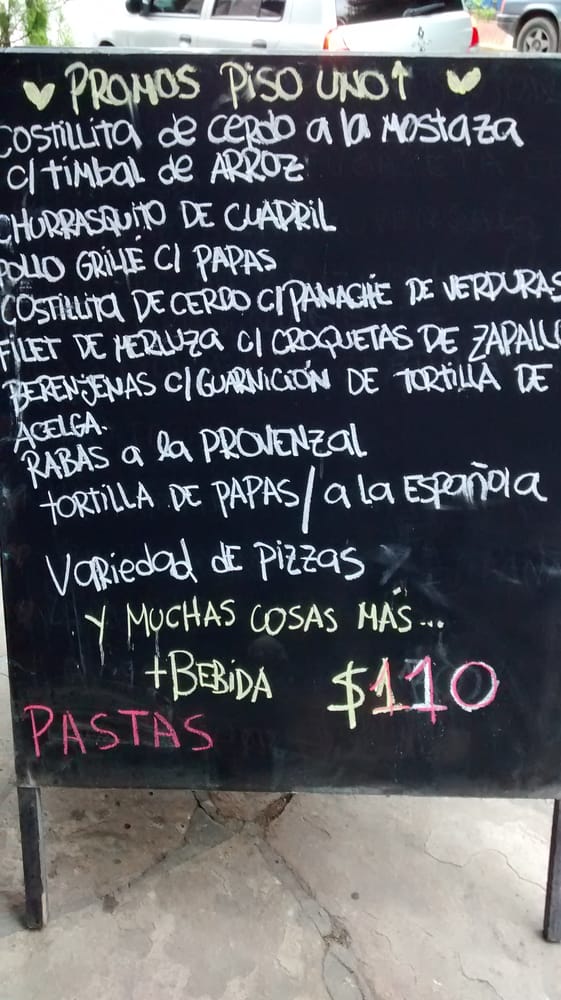 PROMOS PISO UNO↑
COSTILLITA de CERDO a la MOSTAZA
C/ TIMBAL de ARROZ
CHURRASQUITO DE CUADRIL
POLLO GRILLÉ C/ PAPAS
COSTILLITA DE CERDO C/PANACHÉ DE VERDURAS
FILET DE MERLUZA C/ CROQUETAS DE ZAPALLO
BERENJENAS C/GUARNICIÓN DE TORTILLA DE
ACELGA.
RABAS a la PROVENZAL
TORTILLA DE PAPAS/a la ESPAÑOLA
Variedad de Pizzas
Y MUCHAS COSAS MÁS...
+BEBIDA $110
PASTAS